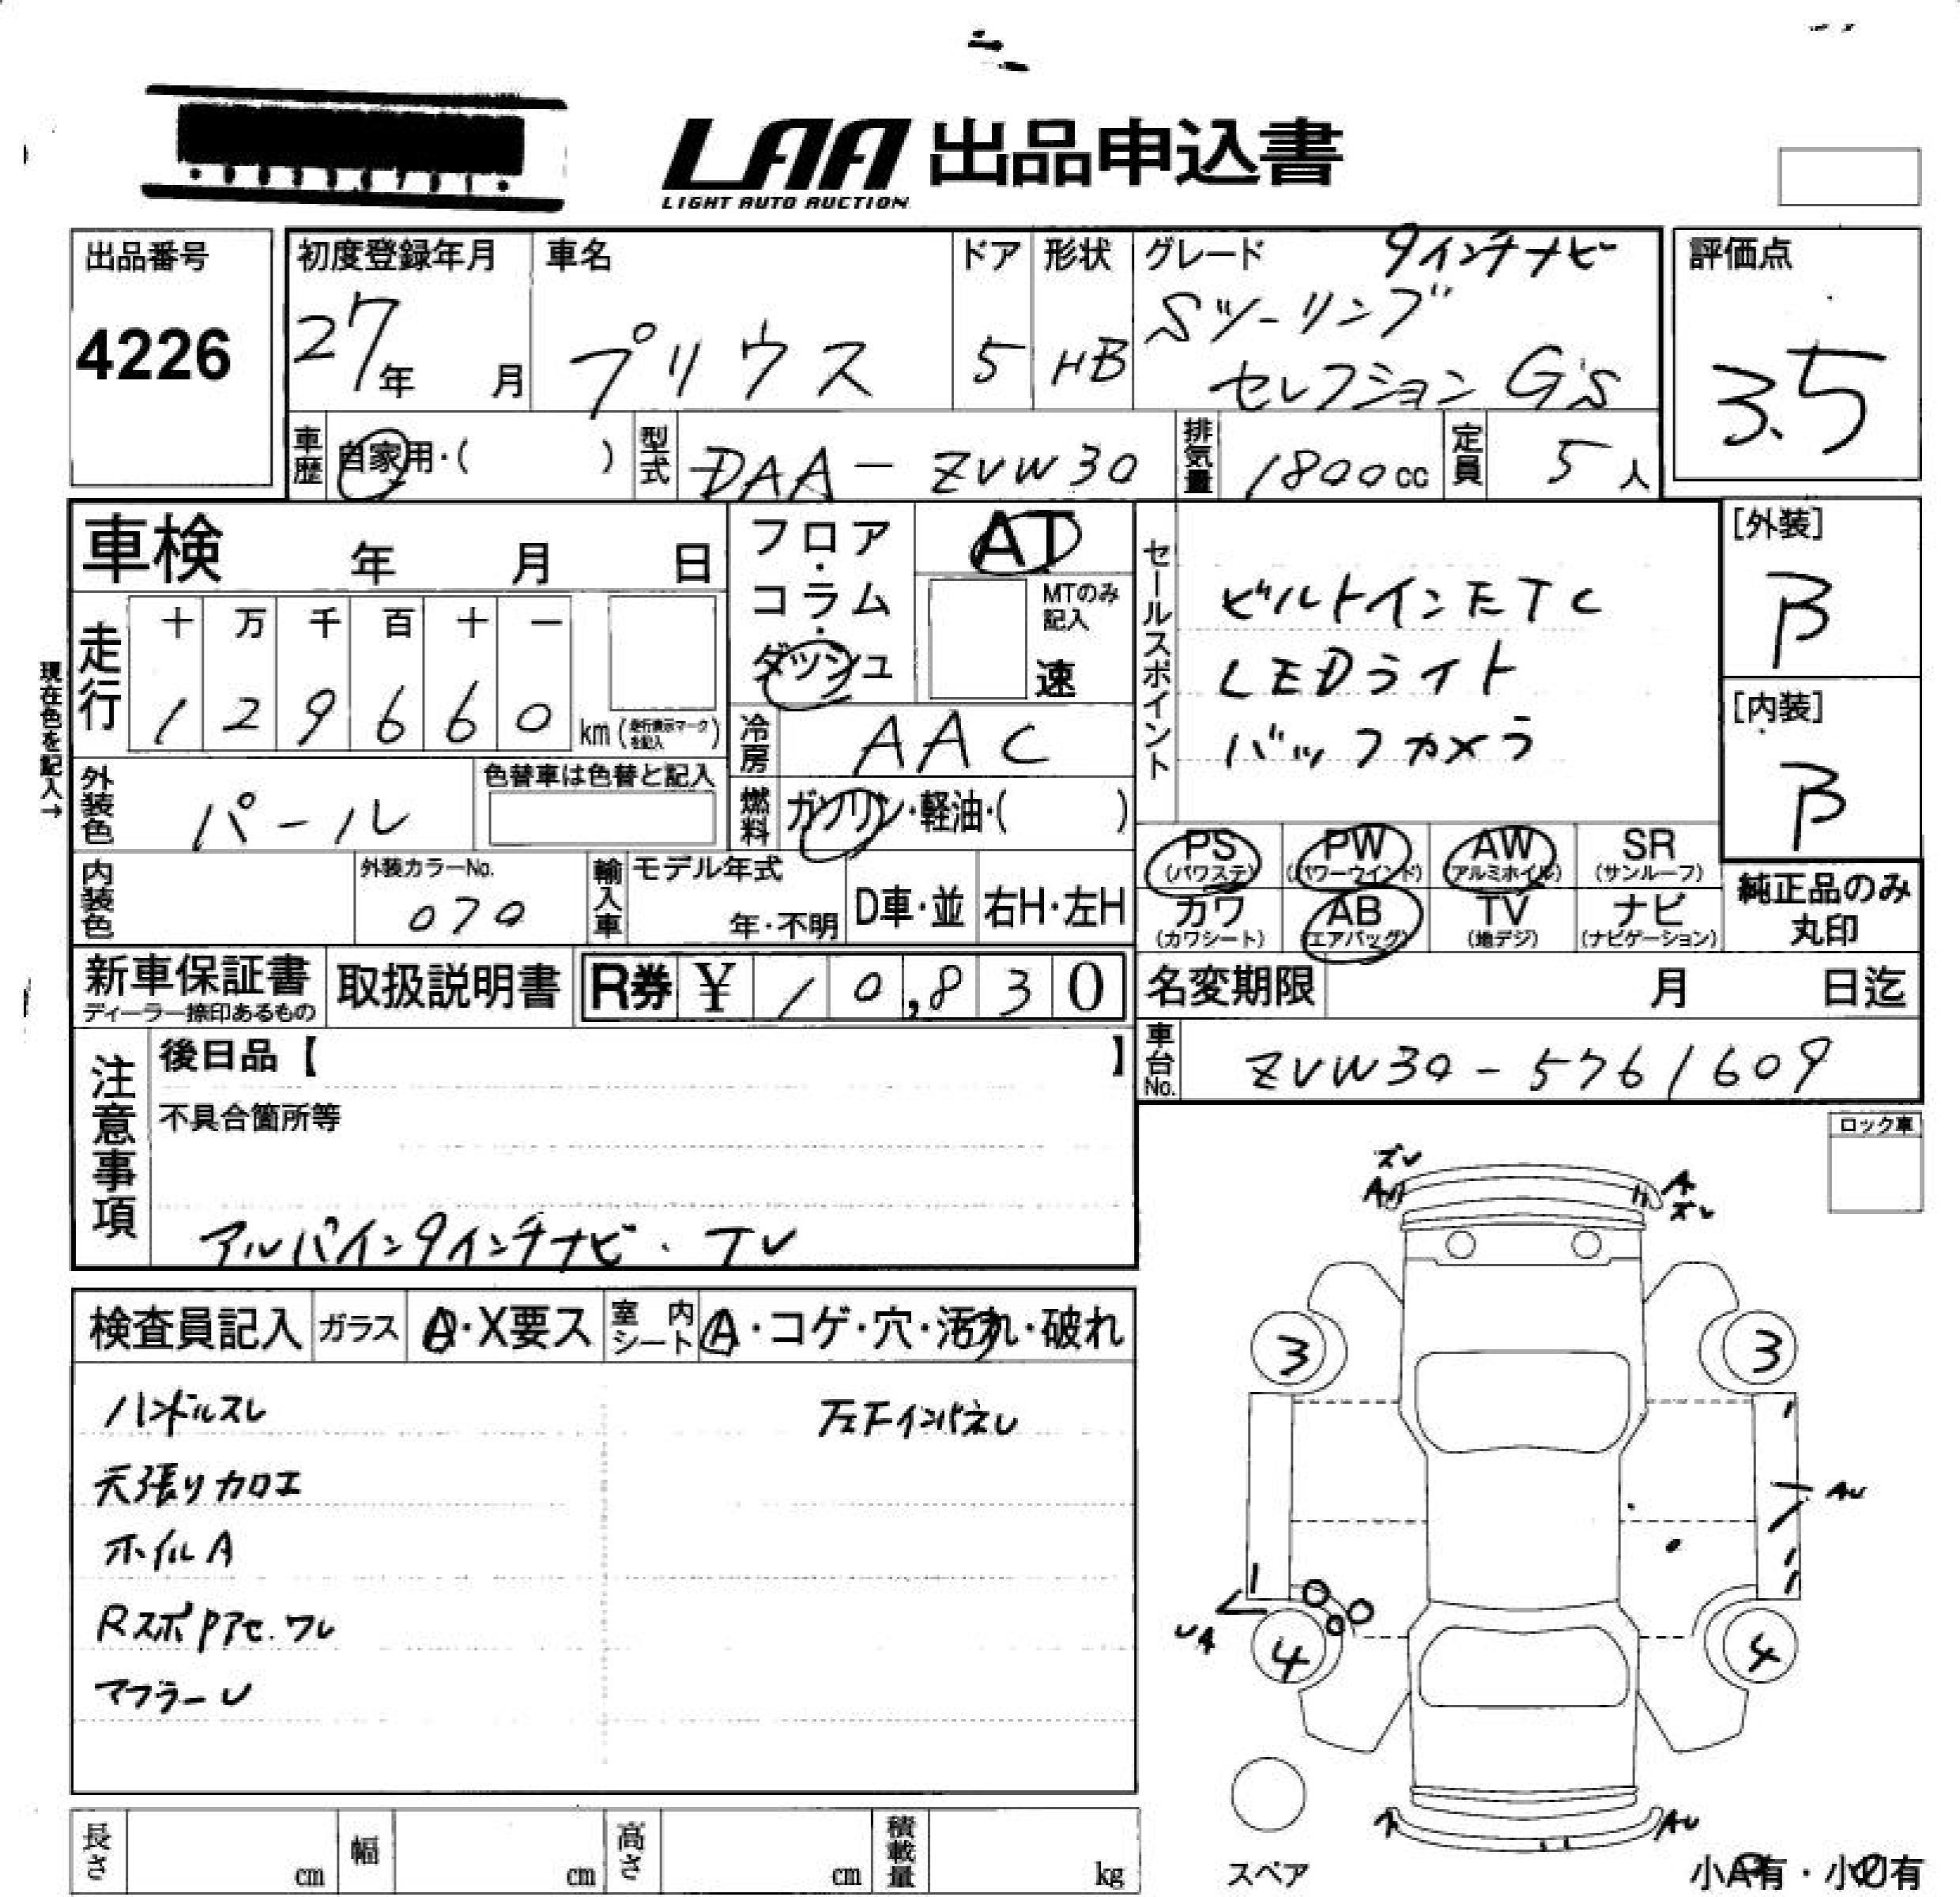 LAA 出品申込書
LIGHT AUTO AUCTION
出品番号
4226
初度登録年月
27年 月
車名
プリウス
ドア
5
形状
HB
グレード 9インチナビ
Sツーリング
セレクション G's
評価点
3.5
車歴 自家用・( )
型式 DAA-ZVW30
排気量 1800cc
定員 5人
車検 年 月 日
フロア・
コラム・
ダッシュ
AT
MTのみ
記入
速
現在色を記入→
走行
十 万 千 百 十 一
1 2 9 6 6 0 km
冷房 AAC
燃料 ガソリン・軽油・( )
外装色 パール
色替車は色替と記入
内装色
外装カラーNo.
070
輸入車
モデル年式
年・不明
D車・並
右H・左H
セールスポイント
ビルトインETC
LEDライト
バックカメラ
[外装]
B
[内装]
B
PS
(パワステ)
PW
(パワーウインド)
AW
(アルミホイル)
SR
(サンルーフ)
カワ
(カワシート)
AB
(エアバッグ)
TV
(地デジ)
ナビ
(ナビゲーション)
純正品のみ
丸印
新車保証書
ディーラー捺印あるもの
取扱説明書
R券 ¥10,830
名変期限 月 日迄
車台No. ZVW30-5761609
注意事項
後日品【 】
不具合箇所等
アルパイン9インチナビ・TV
ロック車
検査員記入
ガラス A・X要ス
室内シート A・コゲ・穴・汚れ・破れ
ハンドルスレ
左Fインパネレ
天張りカロエ
ホイルA
マフラーU
ズレ
A
A
ズレ
3
3
AU
UA
4
4
AU
スペア
小A有・小U有
長さ cm
幅 cm
高さ cm
積載量 kg